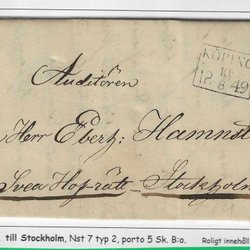 KÖPING
12 8 49
Auditören
Herr Eberh: Hamnst
Svea Hof-rätt Stockholm
till Stockholm, Nst 7 typ 2, porto 5 Sk. B:o.
Roligt innehåll